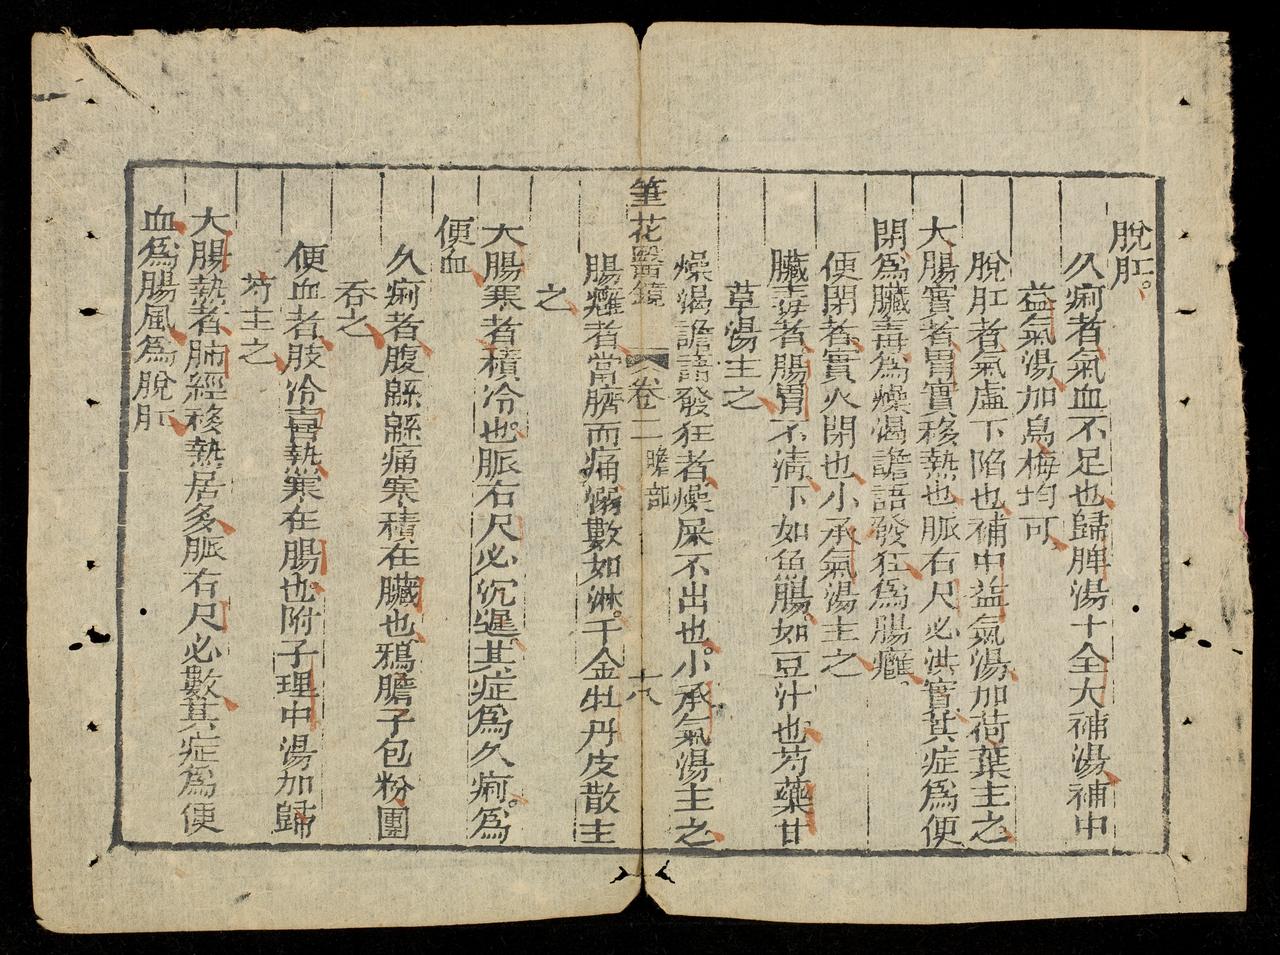 脫肛。
久痢者氣血不足也歸脾湯十全大補湯補中
益氣湯加烏梅均可
脫肛者氣虛下陷也補中益氣湯加荷葉主之
大腸實者胃實移熱也脈右尺必洪實其症爲便
閉爲臟毒爲燥渴譫語發狂爲腸癰
便閉者實火閉也小承氣湯主之
臟毒者腸胃不清下如魚腸如豆汁也芍藥甘
草湯主之
燥渴譫語發狂者燥屎不出也小承氣湯主之
筆花醫鏡 卷二 膽部 十八
腸癰者當臍而痛溺數如淋千金牡丹皮散主
之
大腸寒者積冷也脈右尺必沉遲其症爲久痢。爲
便血
久痢者腹綿綿痛寒積在臟也鴉膽子包粉團
吞之
便血者肢冷喜熱寒在腸也附子理中湯加歸
芍主之
大腸熱者肺經移熱居多脈右尺必數其症爲便
血爲腸風爲脫肛